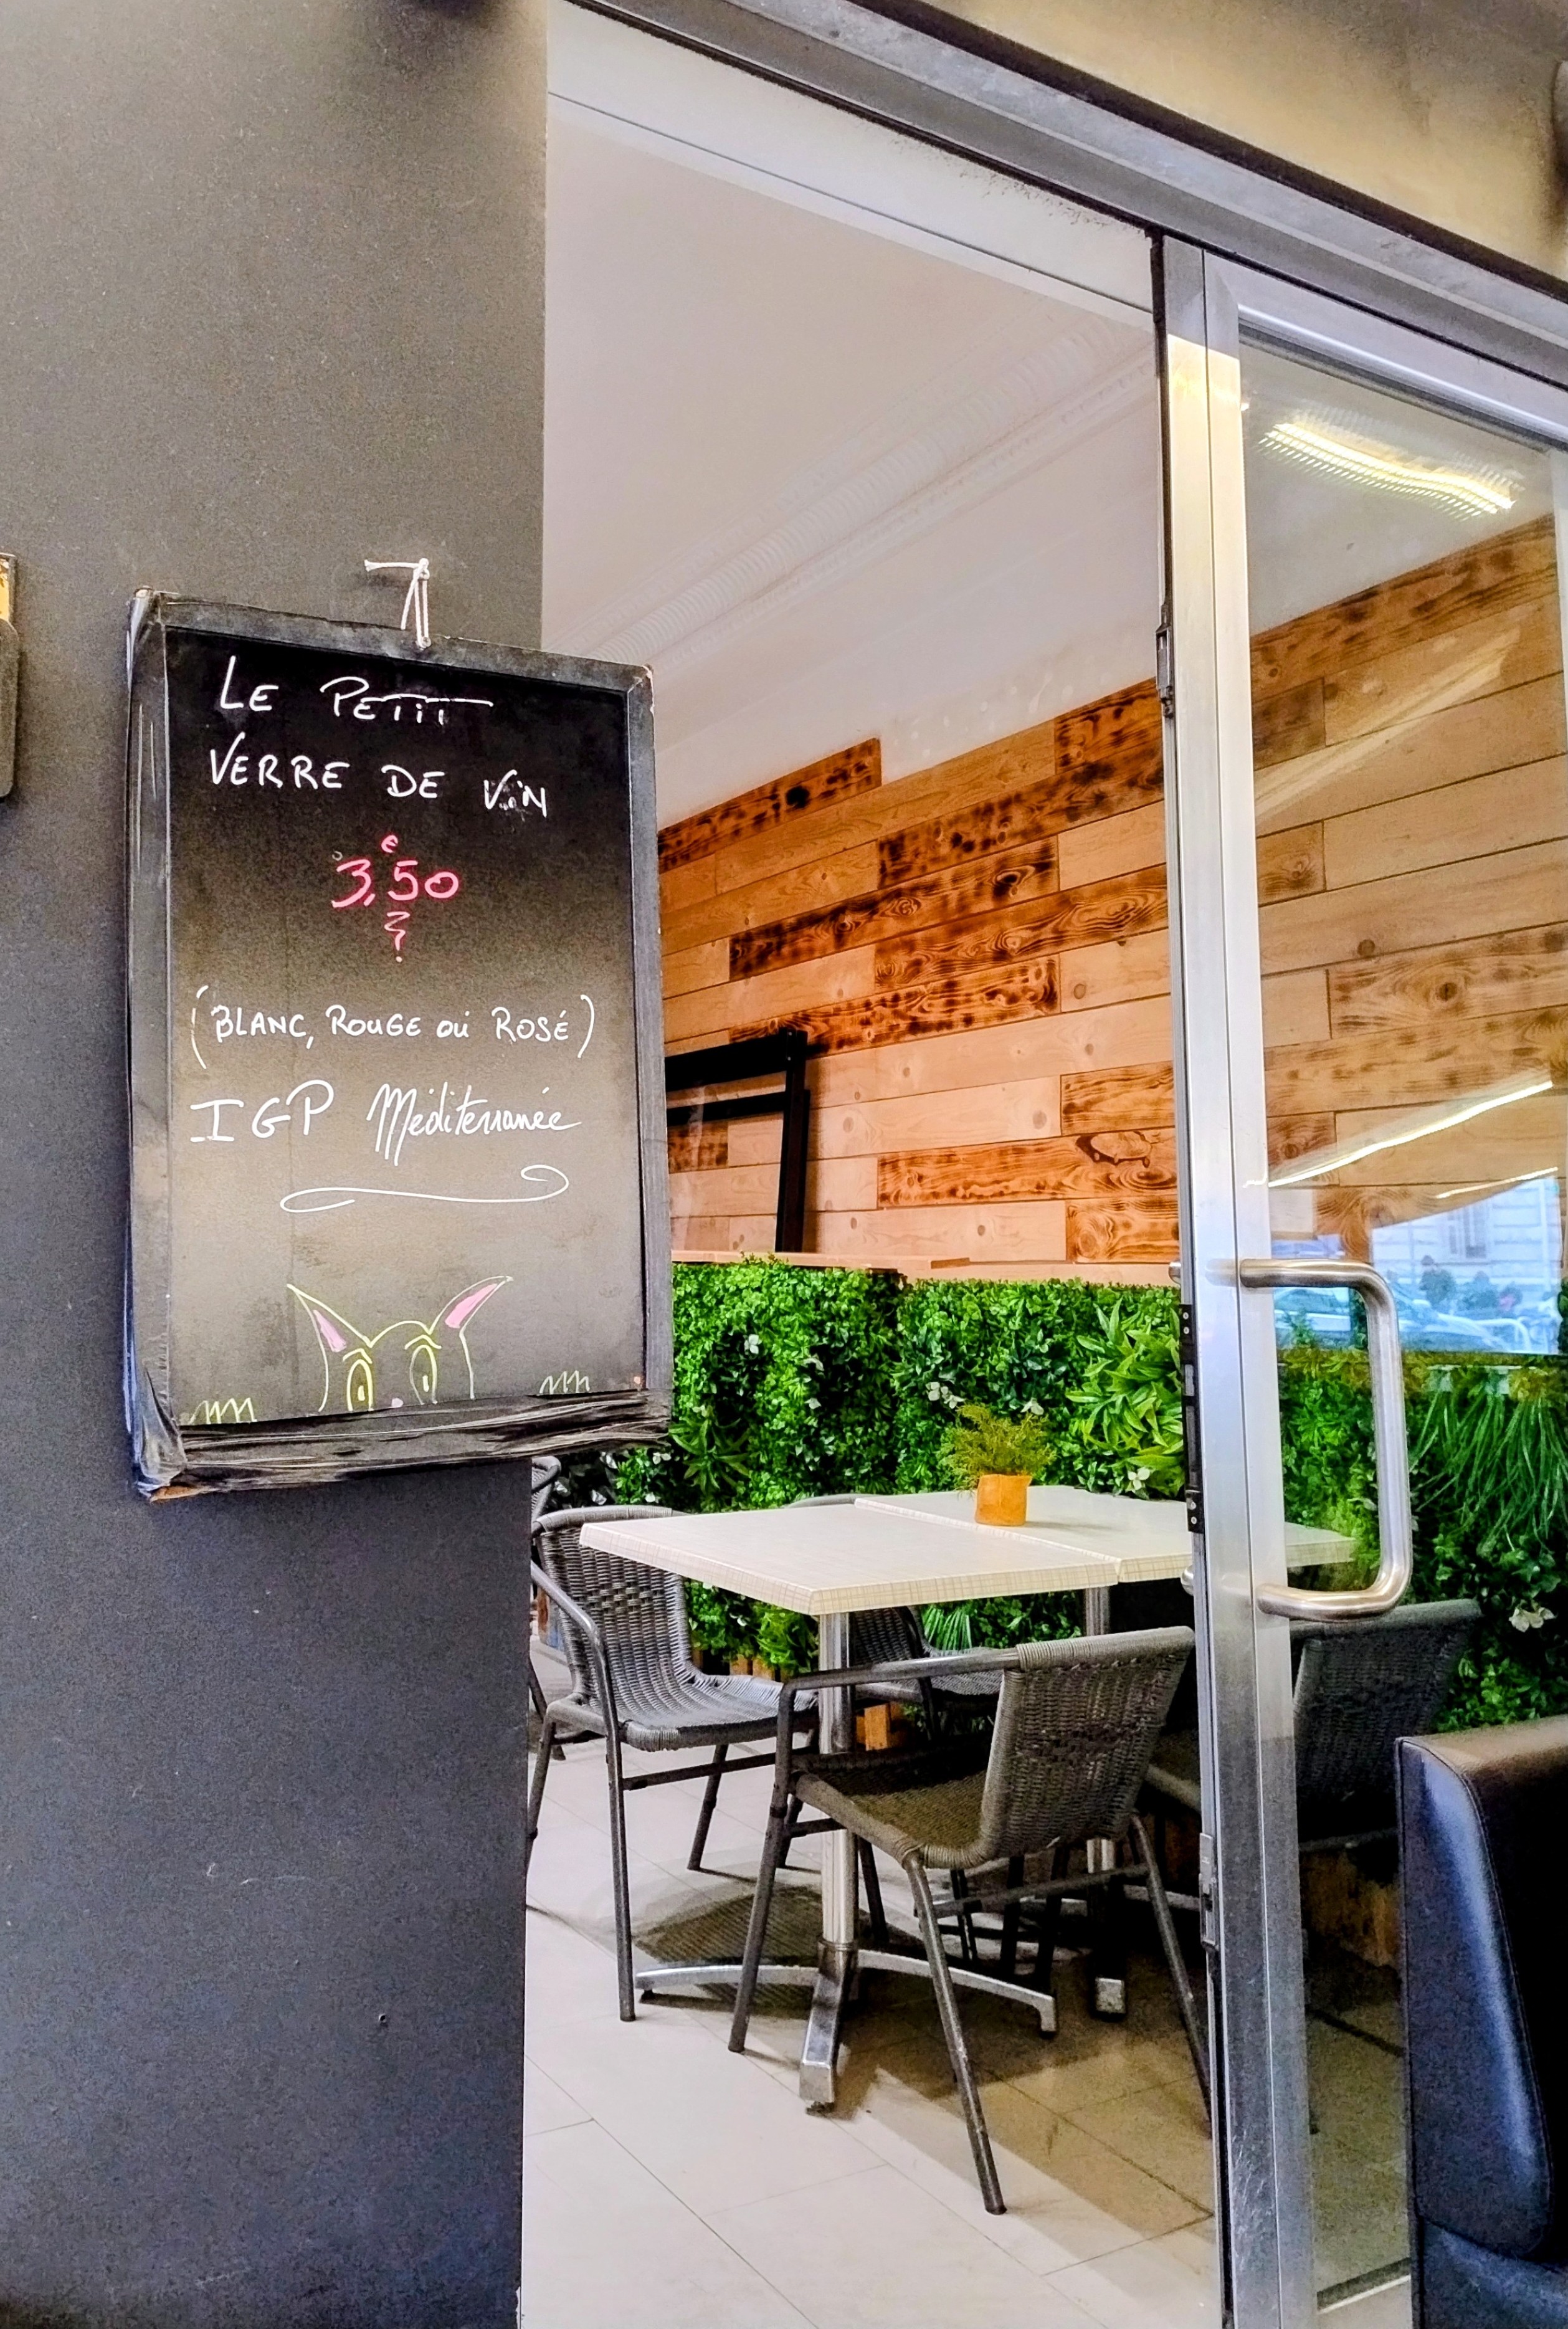 LE PETIT
VERRE DE VIN
€
3,50
(BLANC, ROUGE OU ROSÉ)
IGP Méditerranée